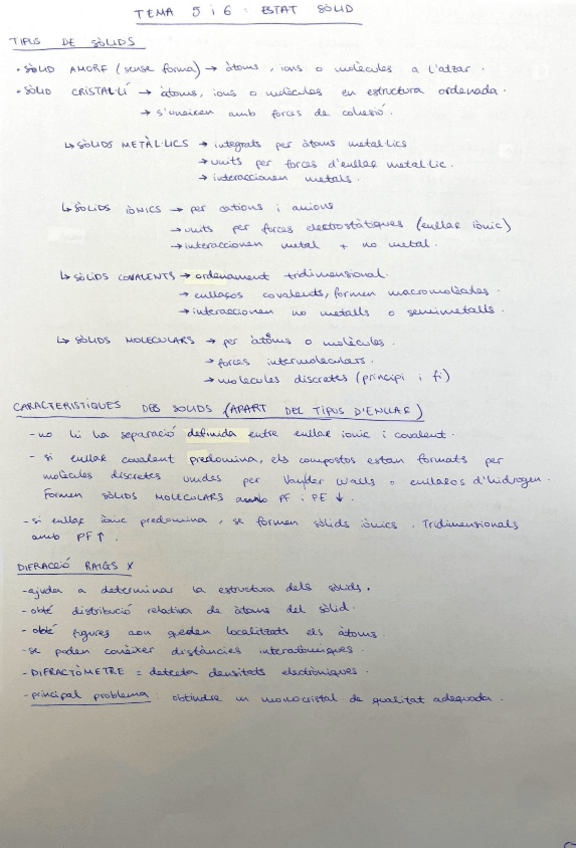 TEMA 5 i 6: ESTAT SÒLID
TIPUS DE SÒLIDS
• SÒLID AMORF (sense forma) → àtoms, ions o molècules a l'atzar.
• SÒLID CRISTAL·LÍ → àtoms, ions o molècules en estructura ordenada.
→ s'uneixen amb forces de cohesió.
↳ SÒLIDS METÀL·LICS → integrats per àtoms metal·lics
→ units per forces d'enllaç metal·lic.
→ interaccionen metals.
↳ SÒLIDS IÒNICS → per cations i anions
→ units per forces electrostàtiques (enllaç iònic)
→ interaccionen metal + no metal.
↳ SÒLIDS COVALENTS → ordenament tridimensional.
→ enllaços covalents, formen macromolècules.
→ interaccionen no metalls o semimetalls.
↳ SÒLIDS MOLECULARS → per àtoms o molècules.
→ forces intermoleculars.
→ molècules discretes (principi i fi)
CARACTERISTIQUES DES SOLIDS (APART DEL TIPUS D'ENLLAÇ)
- no hi ha separació definida entre enllaç ionic i covalent.
- si enllaç covalent predomina, els compostos estan formats per
molècules discretes unides per Vander Walls o enllaços d'hidrogen.
Formen SÒLIDS MOLECULARS amb PF i PE ↓.
- si enllaç iònic predomina, se formen sòlids iònics. Tridimensionals
amb PF ↑.
DIFRACCIÓ RAIGS X
- ajuda a determinar la estructura dels sòlids.
- obté distribució relativa de àtoms del sòlid.
- obté figures aon queden localitzats els àtoms.
- se poden conèixer distàncies interatòmiques.
- DIFRACTÒMETRE = detecta densitats electròniques.
- principal problema: obtindre un monocristal de qualitat adequada.